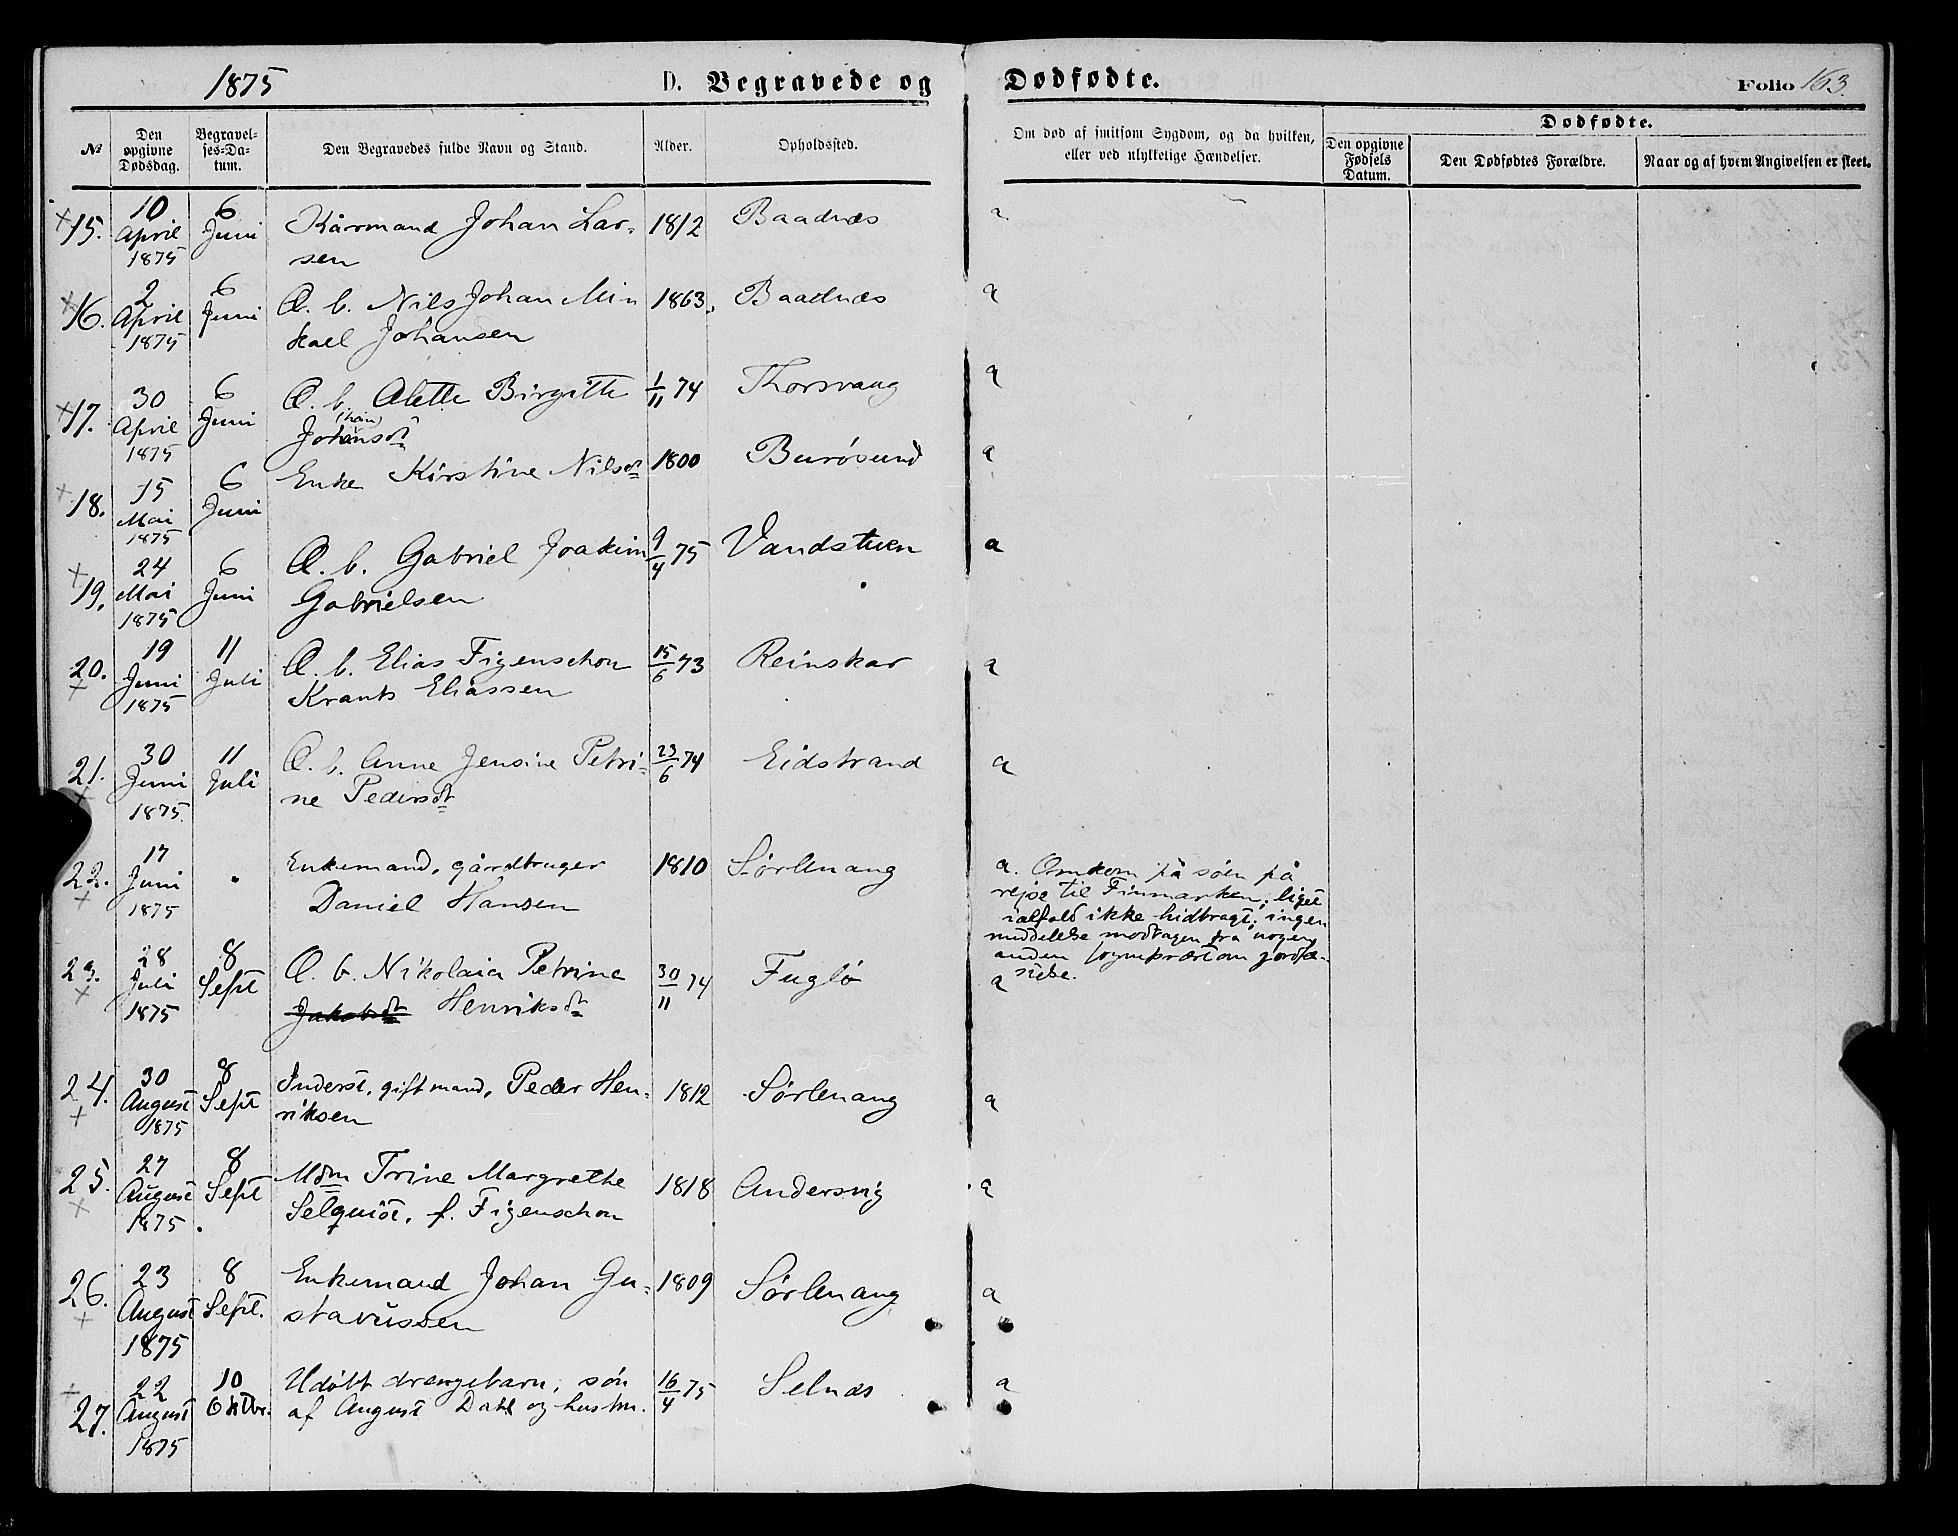 1875 D. Begravede og Dødfødte. Folio 163.
№ Den opgivne Dødsdag. Begravel-ses-Da-tum. Den Begravedes fulde Navn og Stand. Alder. Opholdssted. Om død af smitsom Sygdom, og da hvilken, eller ved ulykkelige Hændelser. Dødfødte. Den opgivne Fødsels Datum. Den Dødfødtes Forældre. Naar og af hvem Angivelsen er skeet.
15. 10 April 1875 6 Juni Kårmand Johan Lar- 1812 Baadnæs a
sen
16. 2 April 1875 6 Juni Æ. b. Nils Johan Min 1863. Baadnæs a
kael Johansen
17. 30 April 1875 6 Juni Æ. b. Alette Birgitte 1/11 74 Thorsvaag a
Johansdt
18. 15 Mai 1875 6 Juni Enke Kirstine Nilsdt 1800 Burøsund a
19. 24 Mai 1875 6 Juni Æ. b. Gabriel Joakim 9/4 75 Vandstuen a
Gabrielsen
20. 19 Juni 1875 11 Juli Æ. b. Elias Figenschou 15/6 73 Reinskar a
Krants Eliassen
21. 30 Juni 1875 11 Juli Æ. b. Anne Jensine Petri- 23/6 74 Eidstrand a
ne Pedersdt
22. 17 Juni 1875 Enkemand, gårdbruger 1810 Sørlenang a. Omkom på søen på
Daniel Hansen rejse til Finmarken; liget
ialfald ikke hidbragt; ingen
meddelelse modtagen fra nogen
anden sogneprest om jordfæ-
stelse.
23. 28 Juli 1875 8 Sept Æ. b. Nikolaia Petrine 30/11 74 Fuglø a
Jakobsdt Henriksdt
24. 30 August 1875 8 Sept Inderst, gift mand, Peder Hen- 1812 Sørlenang a
riksen
25. 27 August 1875. 8 Sept Mdm Trine Margrethe 1818 Andersvig a
Selquist, f. Figenschou
26. 23 August 1875 8 Sept. Enkemand Johan Gu- 1809 Sørlenang a
stavussen
27. 22 August 1875 10 Oktbr. Udøbt drengebarn, søn 16/4 75 Selnæs a
af August Dahl og hustru.